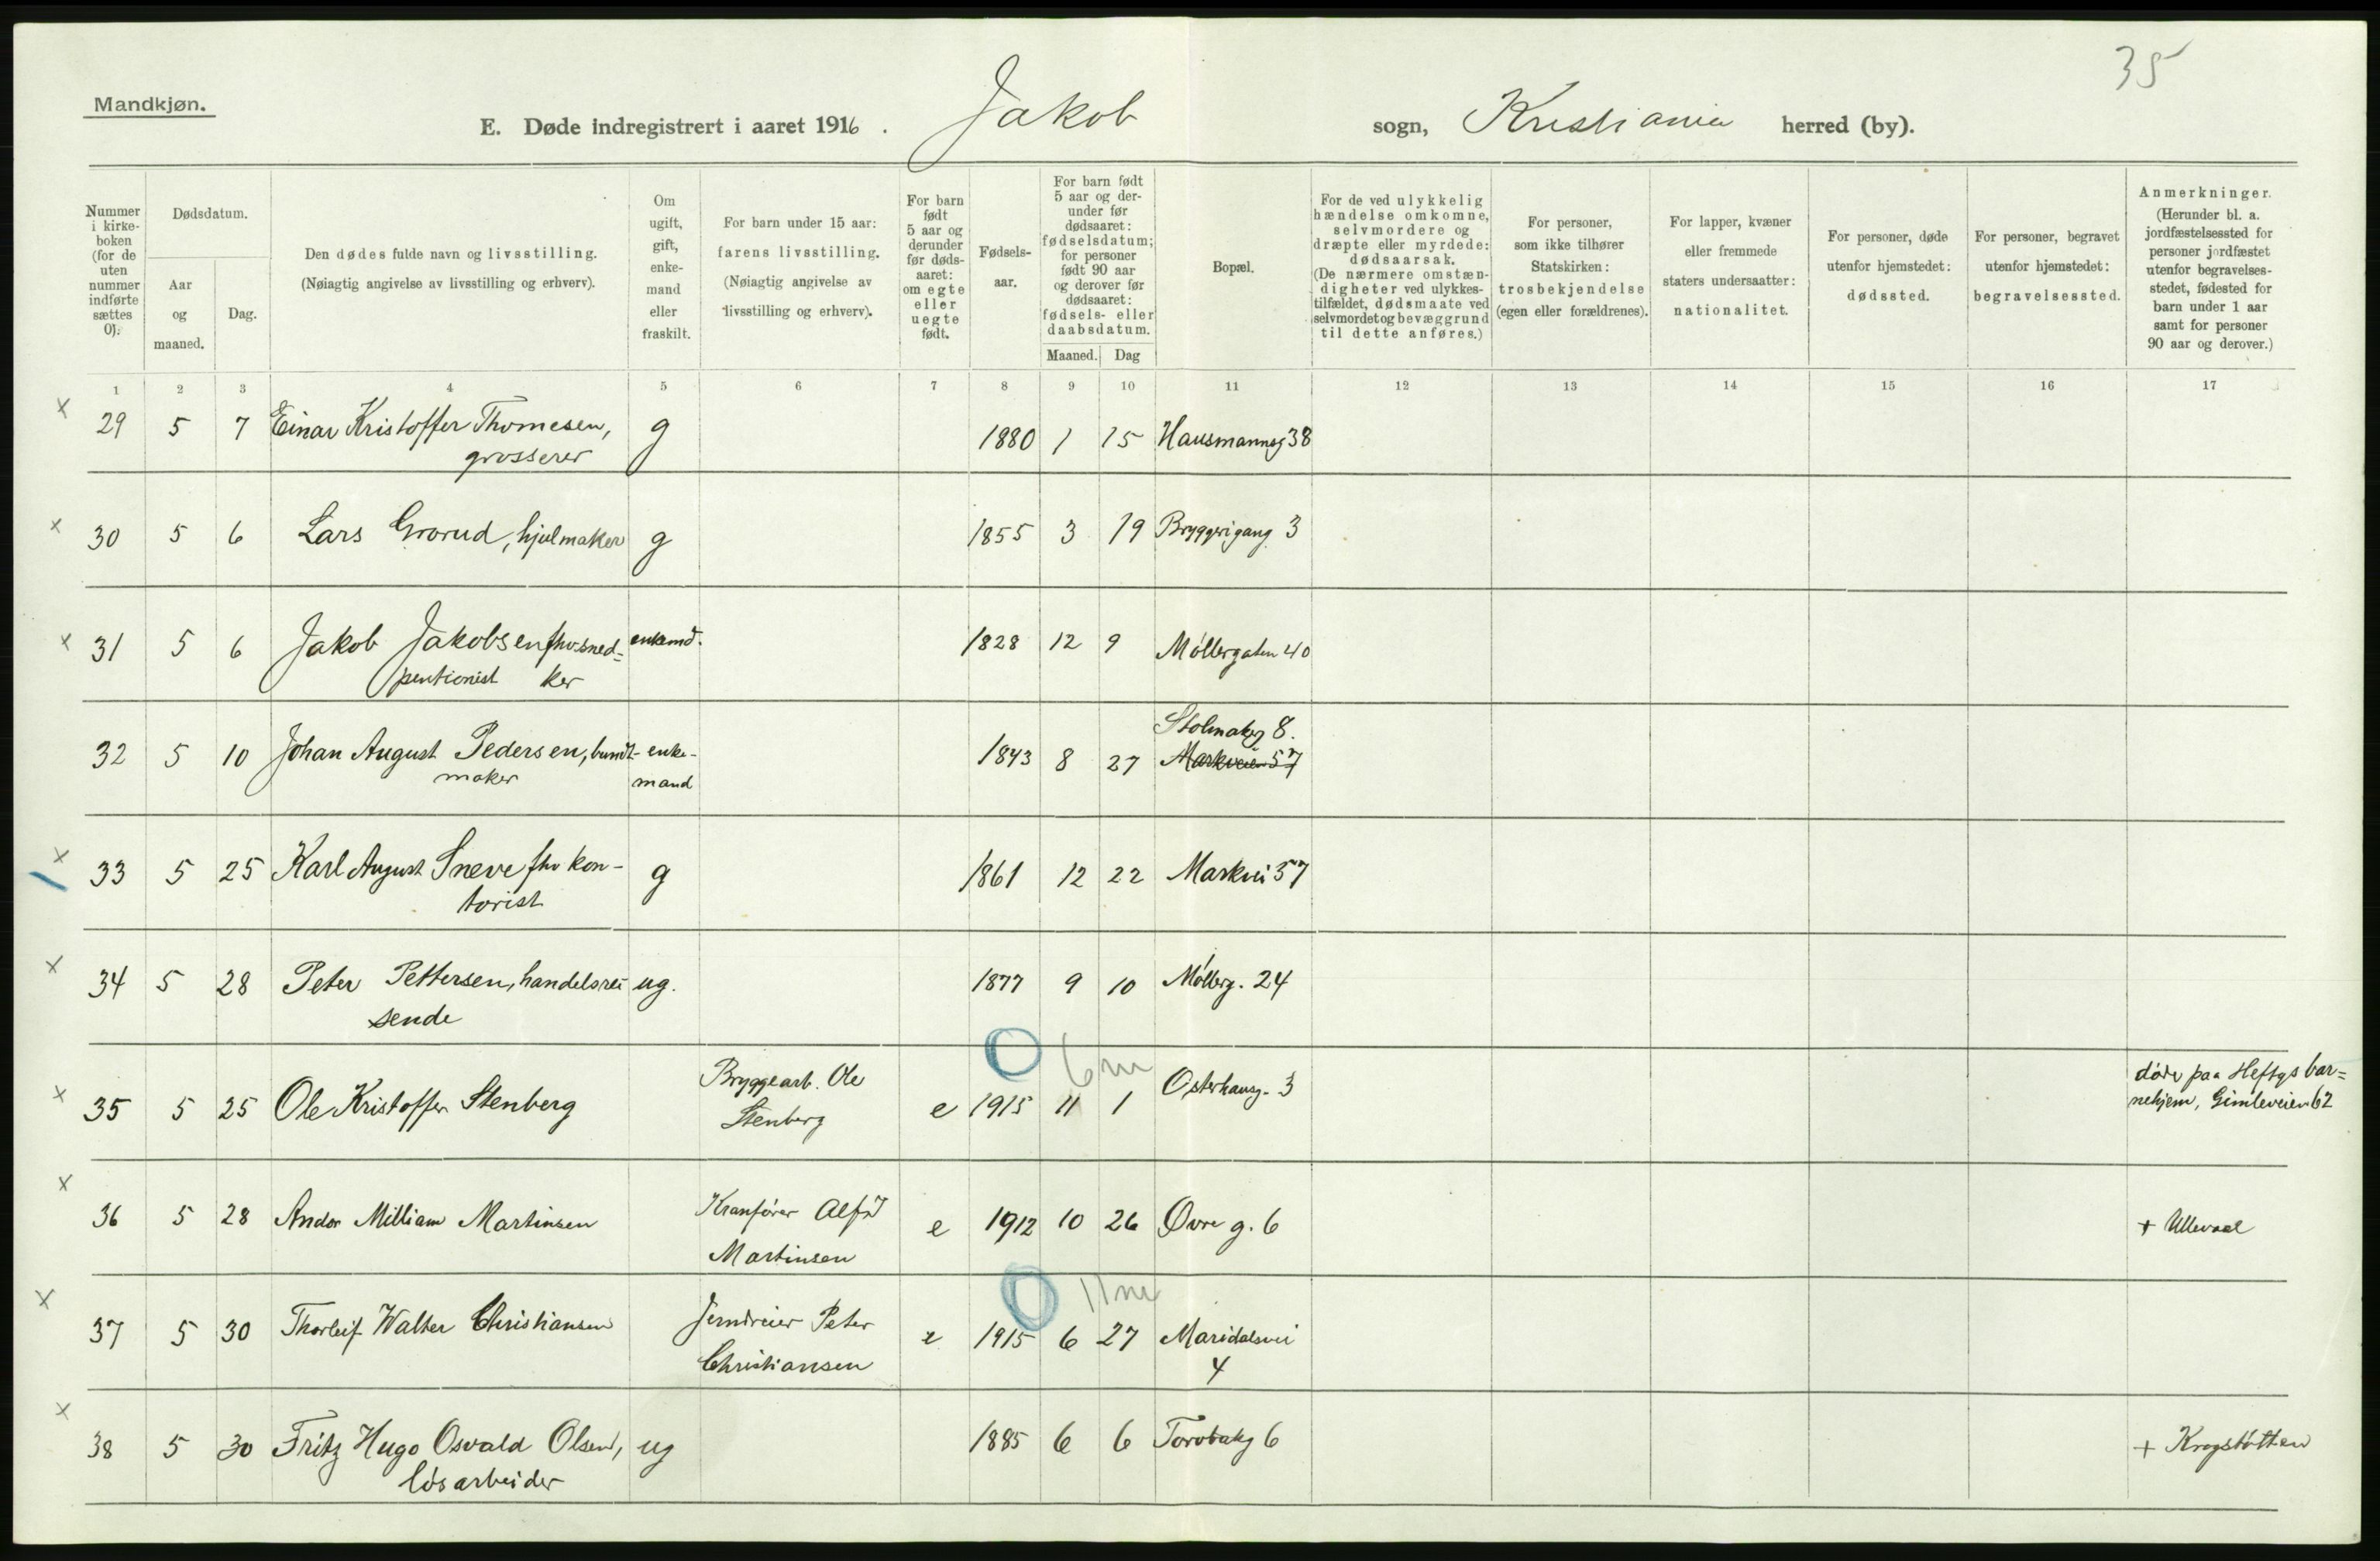 35
Mandkjøn.
E. Døde indregistrert i aaret 1916. Jakob sogn, Kristiania herred (by).
Nummer i kirke-boken (for de uten nummer indførte sættes 0).
Dødsdatum.
Aar og maaned.
Dag.
Den dødes fulde navn og livsstilling.
(Nøiagtig angivelse av livsstilling og erhverv).
Om ugift, gift, enke-mand eller fraskilt.
For barn under 15 aar: farens livsstilling.
(Nøiagtig angivelse av livsstilling og erhverv).
For barn født 5 aar og derunder før døds-aaret: om egte eller uegte født.
Fødsels-aar.
For barn født 5 aar og der-under før dødsaaret: fødselsdatum; for personer født 90 aar og derover før dødsaaret: fødsels- eller daabsdatum.
Maaned. Dag
Bopæl.
For de ved ulykkelig hændelse omkomne, selvmordere og dræpte eller myrdede: dødsaarsak.
(De nærmere omstæn-digheter ved ulykkes-tilfældet, dødsmaate ved selvmordet og bevæggrund til dette anføres.)
For personer, som ikke tilhører Statskirken: trosbekjendelse (egen eller forældrenes).
For lapper, kvæner eller fremmede staters undersaatter: nationalitet.
For personer, døde utenfor hjemstedet: dødssted.
For personer, begravet utenfor hjemstedet: begravelsessted.
Anmerkninger.
(Herunder bl. a. jordfæstelsessted for personer jordfæstet utenfor begravelses-stedet, fødested for barn under 1 aar samt for personer 90 aar og derover.)
1 2 3 4 5 6 7 8 9 10 11 12 13 14 15 16 17
x 29 5 7 Einar Kristoffer Thomesen, g 1880 1 15 Hausmannsg 38
grosserer
x 30 5 6 Lars Grorud, hjulmaker g 1855 3 19 Bryggerigang 3
x 31 5 6 Jakob Jakobsen fhv. sned= enkemd. 1828 12 9 Møllergaten 40
pentionist ker
Stolmakerg 8.
32 5 10 Johan August Pedersen, bundt- enke- 1843 8 27 Markveien 57
maker mand
x 33 5 25 Karl August Sneve fhv kon- g 1861 12 22 Markvei 57
torist
x 34 5 28 Peter Pettersen, handelsrei- ug. 1877 9 10 Møllerg. 24
sende
0 6 m
x 35 5 25 Ole Kristoffer Stenberg Bryggearb. Ole e 1915 11 1 Osterhausg. 3 døde paa Heftys bar=
Stenberg nehjem, Gimleveien 62
x 36 5 28 Andor William Martinsen Kranfører Alfr e 1912 10 26 Øvre g. 6 + Ullevaal
Martinsen
0 11 m
x 37 5 30 Thorleif Walter Christiansen Jerndreier Peter e 1915 6 27 Maridalsvei
Christiansen 4
x 38 5 30 Fritz Hugo Osvald Olsen, ug 1885 6 6 Torvbakg 6 + Krogstøtten
løsarbeider